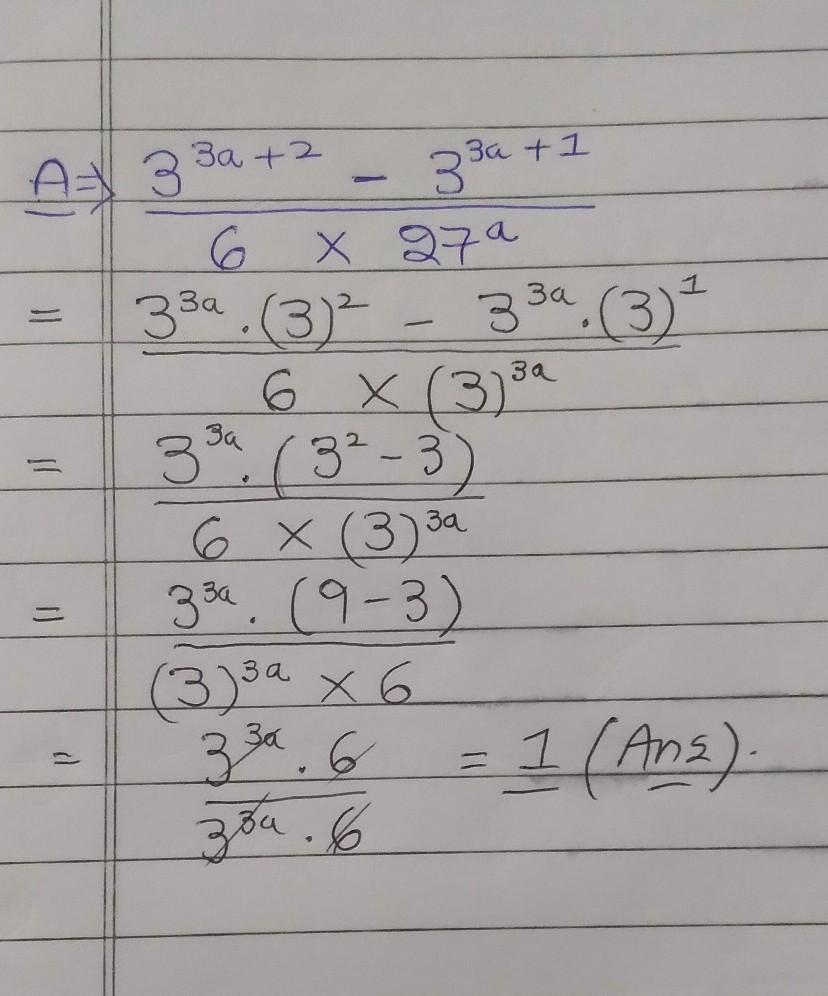 A⇒ 3^{3a+2} - 3^{3a+1}
6 × 27^a
= 3^{3a} . (3)^2 - 3^{3a} . (3)^1
6 × (3)^{3a}
= 3^{3a} . (3^2 - 3)
6 × (3)^{3a}
= 3^{3a} . (9-3)
(3)^{3a} × 6
= 3^{3a} . 6 = 1 (Ans).
3^{3a} . 6